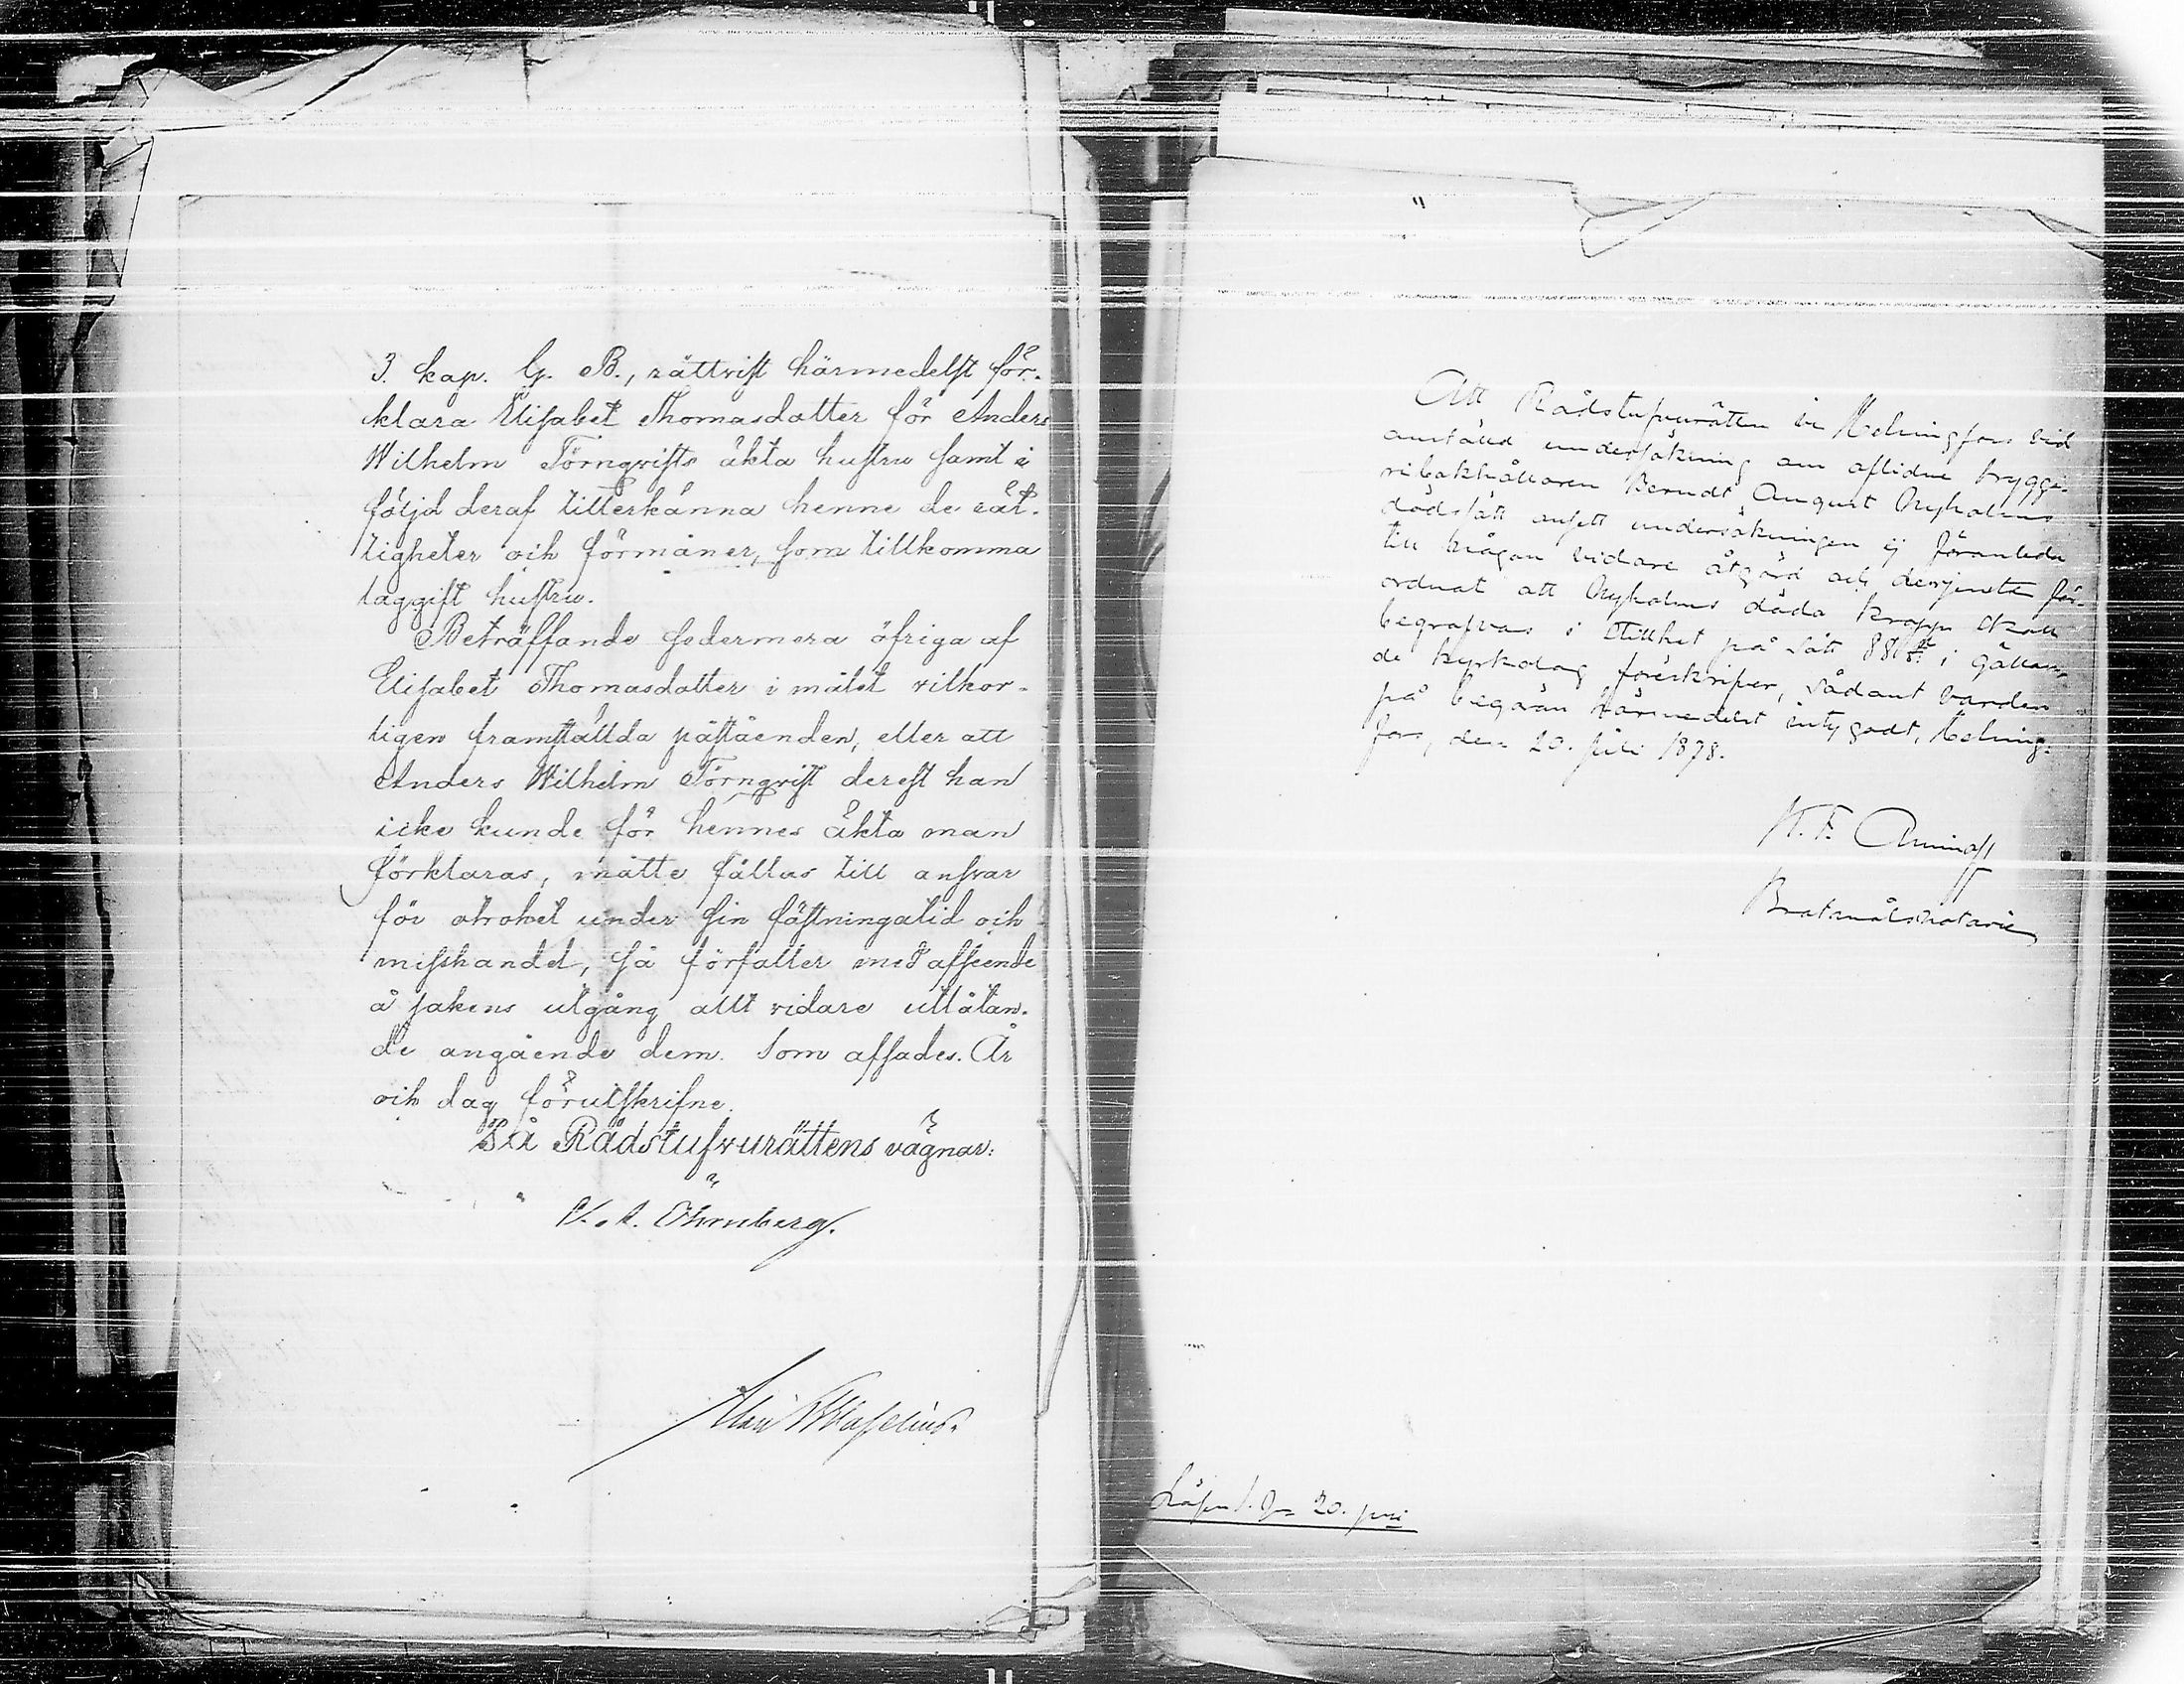 3. kap. G. B., rättvist härmedelst för-
klara Elisabet Thomasdotter för Anders
Wilhelm Törnqvists äkta hustru samt i
följd deraf tillerkänna henne de rät-
tigheter och förmåner, som tillkomma
laggift hustru.
Beträffande sedermera öfriga af
Elisabet Thomasdotter i målet vilkor-
ligen framställda påståenden, eller att
Anders Wilhelm Törnqvist derest han
icke kunde för hennes äkta man
förklaras, måtte fällas till ansvar
för otrohet under sin fästningatid och
misshandel, så förfaller med afseende
å sakens utgång allt vidare utlåtan-
de angående dem. Som afsades. År
och dag förutskrifne.
På Rådstufvurättens vägnar:
Öhrnberg.
Att Rådstufvurätten i Helsingfors vid
anstäld undersökning om aflidne brygge-
ribokhållaren Berndt August Nyholms
dödssätt ansett undersökningen ej föranleda
till någon vidare åtgärd och derjemte för-
ordnat att Nyholms döda kropp skall
begrafvas i stillhet på sätt 88 § i gällan-
de kyrkolag föreskrifver, sådant varder
på begäran härmedelst intygadt, Helsing-
fors, den 20. Juli 1878.
K. F. Aminoff
Brottmålsnotarie
20. juli